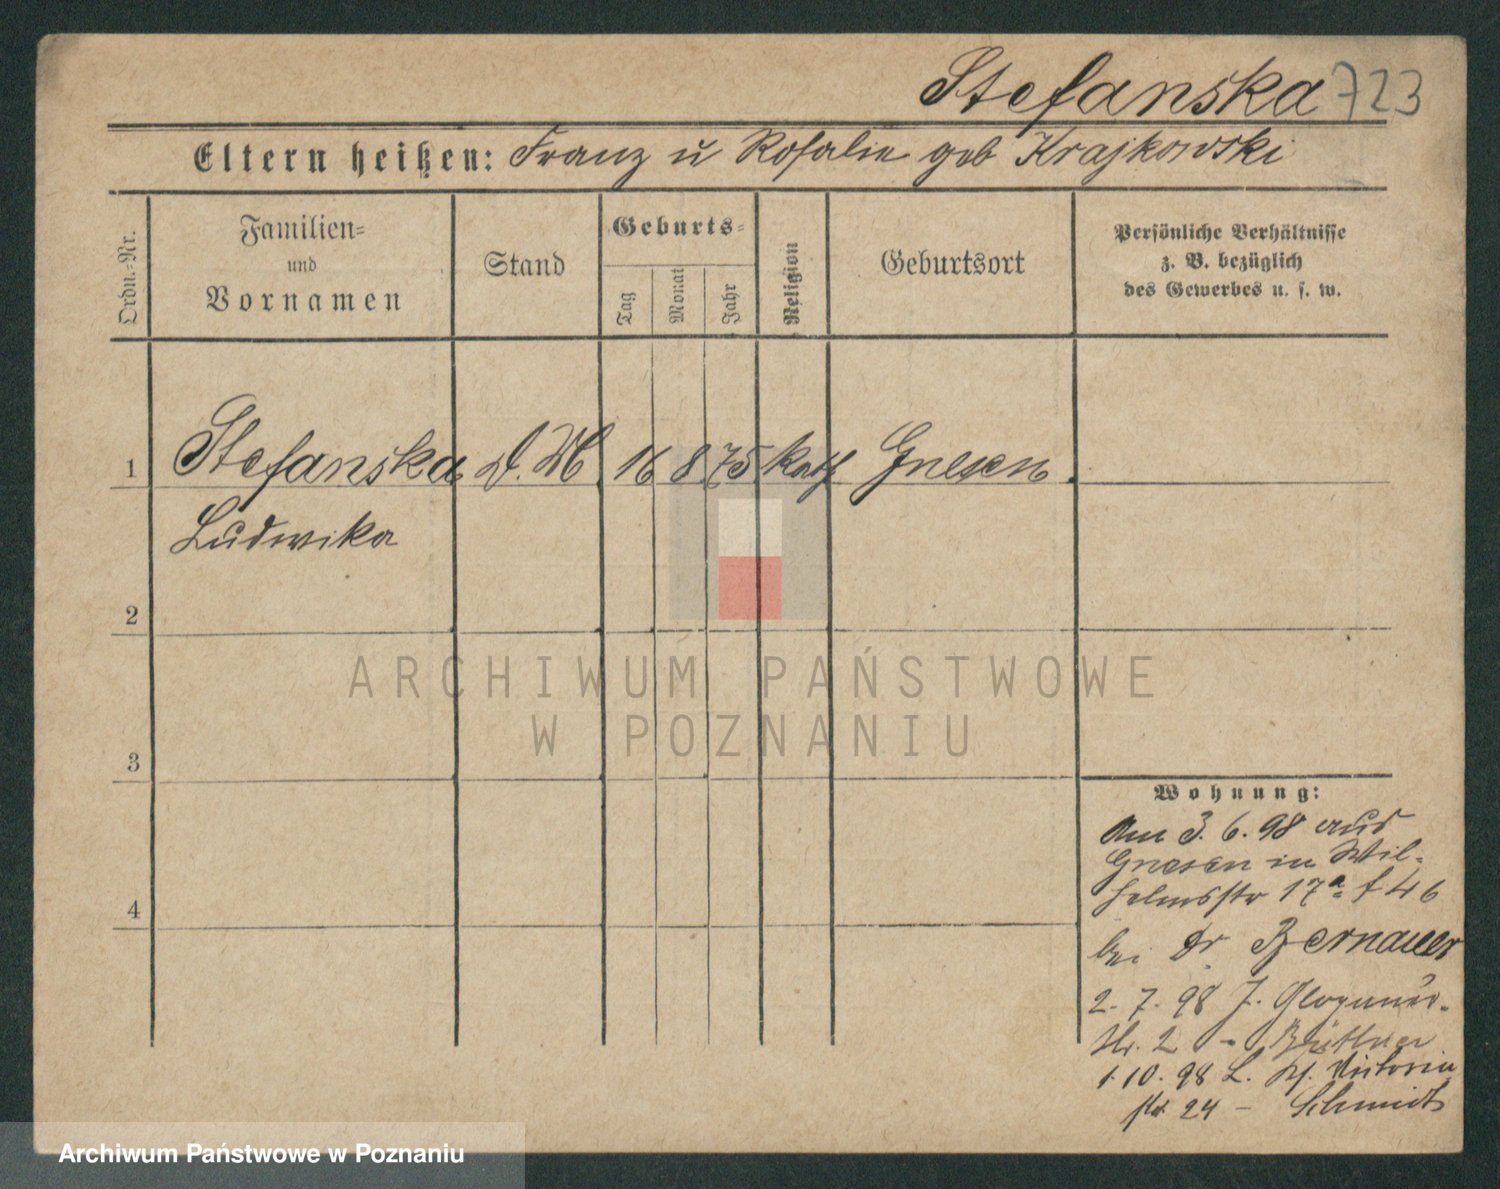 Stefanska 723
Eltern heißen: Franz u Rosalie geb Krajkowski
Ordn.-Nr.
Familien-
und
Vornamen
Stand
Geburts-
Tag
Monat
Jahr
Religion
Geburtsort
Persönliche Verhältnisse
z. B. bezüglich
des Gewerbes u. s. w.
1 Stefanska D. M 16 8 75 kath Gnesen
Ludwika
2
3
4
Wohnung:
Am 3. 6. 98 aus
Gnesen in Wil-
helmsstr 17a
bei Dr Bernauer
2. 7. 98 J. Glogauer-
str. 2 - Büttner
1. 10. 98 Victoria
str 24 - Schmidt
ARCHIWUM PAŃSTWOWE
W POZNANIU
Archiwum Państwowe w Poznaniu